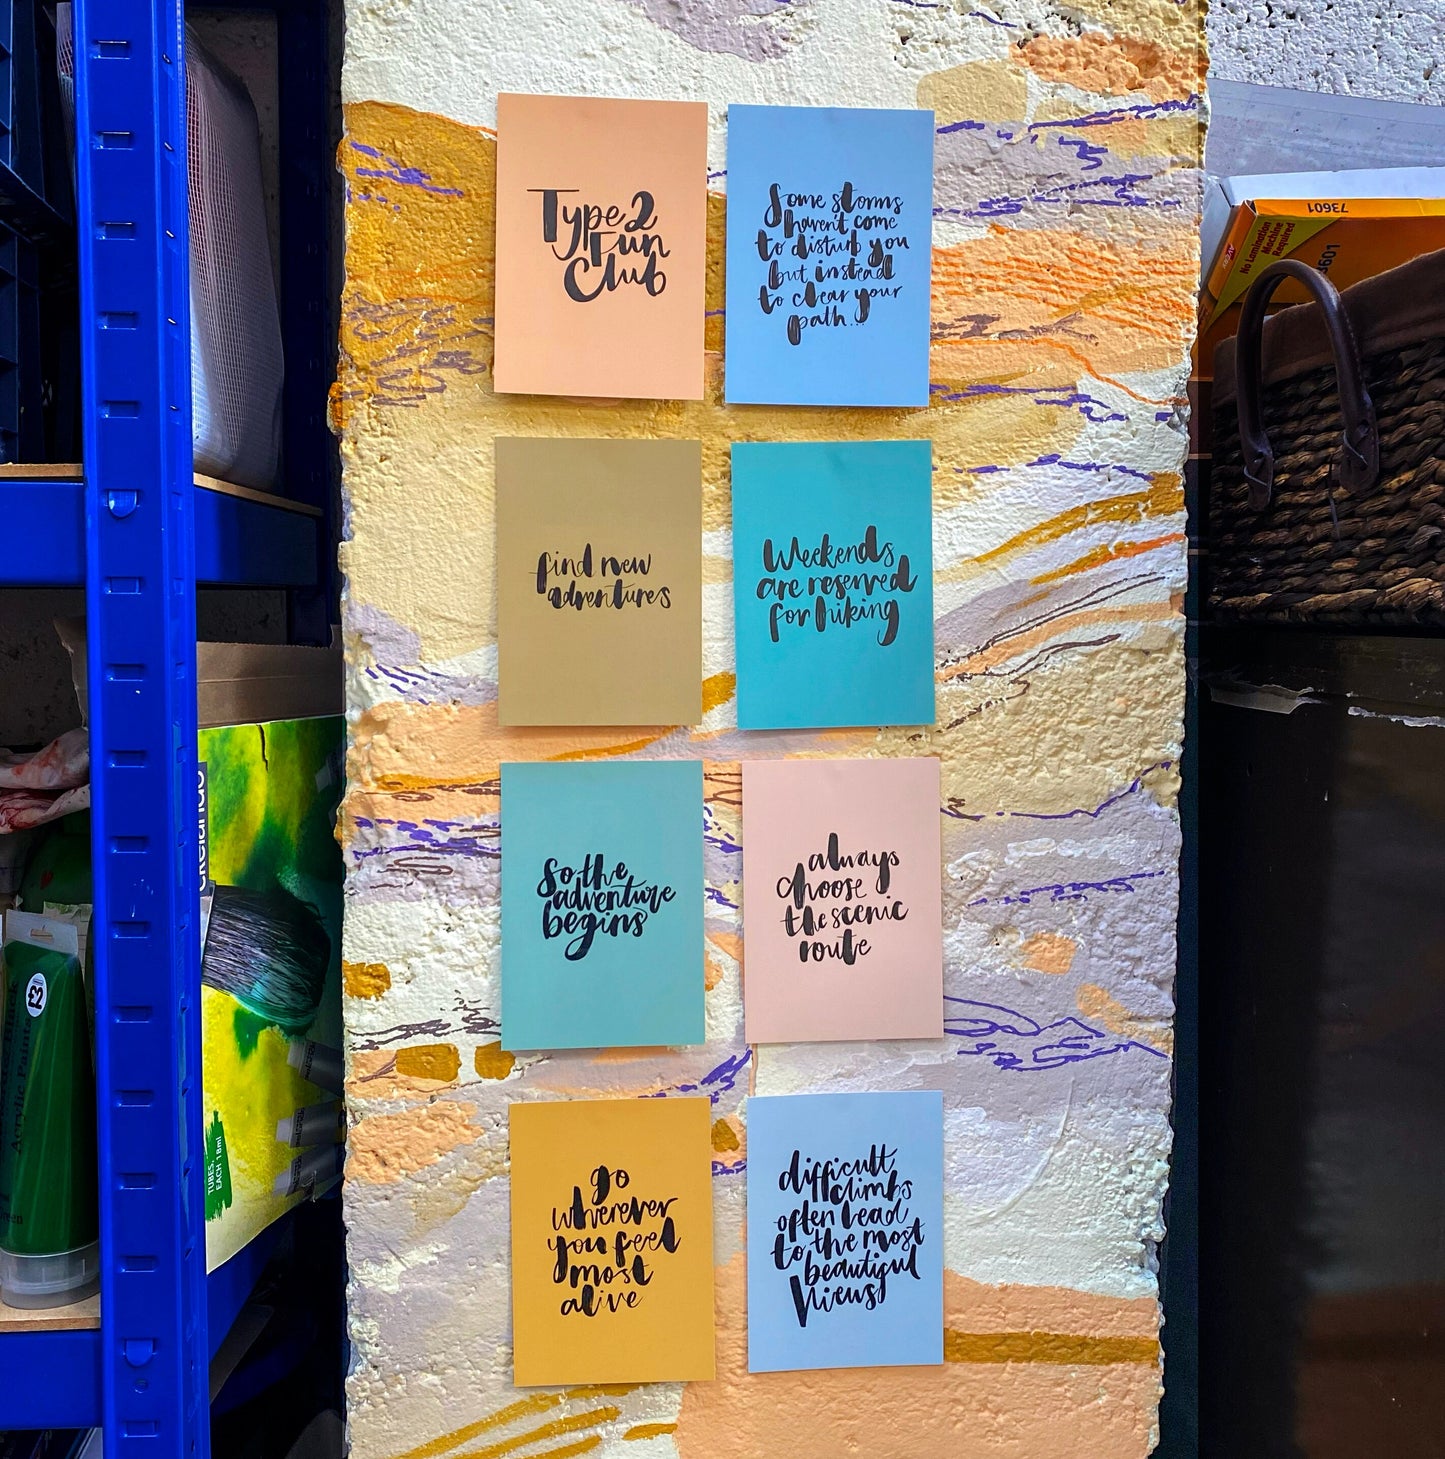 Type 2
Fun
Club
Some storms
haven't come
to disturb you
but instead
to clear your
path...
find new
adventures
Weekends
are reserved
for hiking
So the
adventure
begins
always
choose
the scenic
route
go
wherever
you feel
most
alive
difficult
climbs
often lead
to the most
beautiful
views
73601
No Lamination
Machine
Required
£3
Acrylic Paint
TUBES,
EACH 18ml